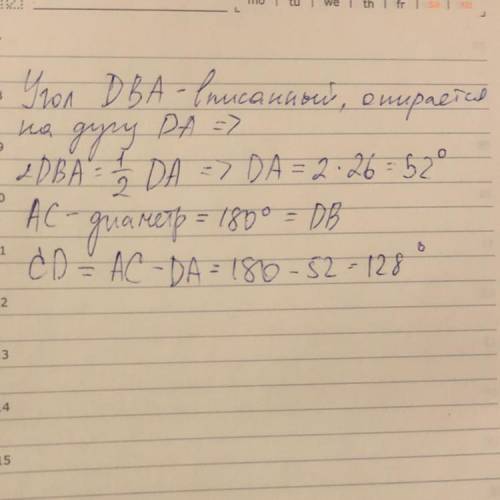 mo | tu | we | th | fr | sa | su
Угол DBA - вписанный, опирается
на дугу DA =>
∠DBA = 1/2 DA => DA = 2·26 = 52°
AC - диаметр = 180° = DB
CD = AC - DA = 180 - 52 = 128°
12
13
14
15